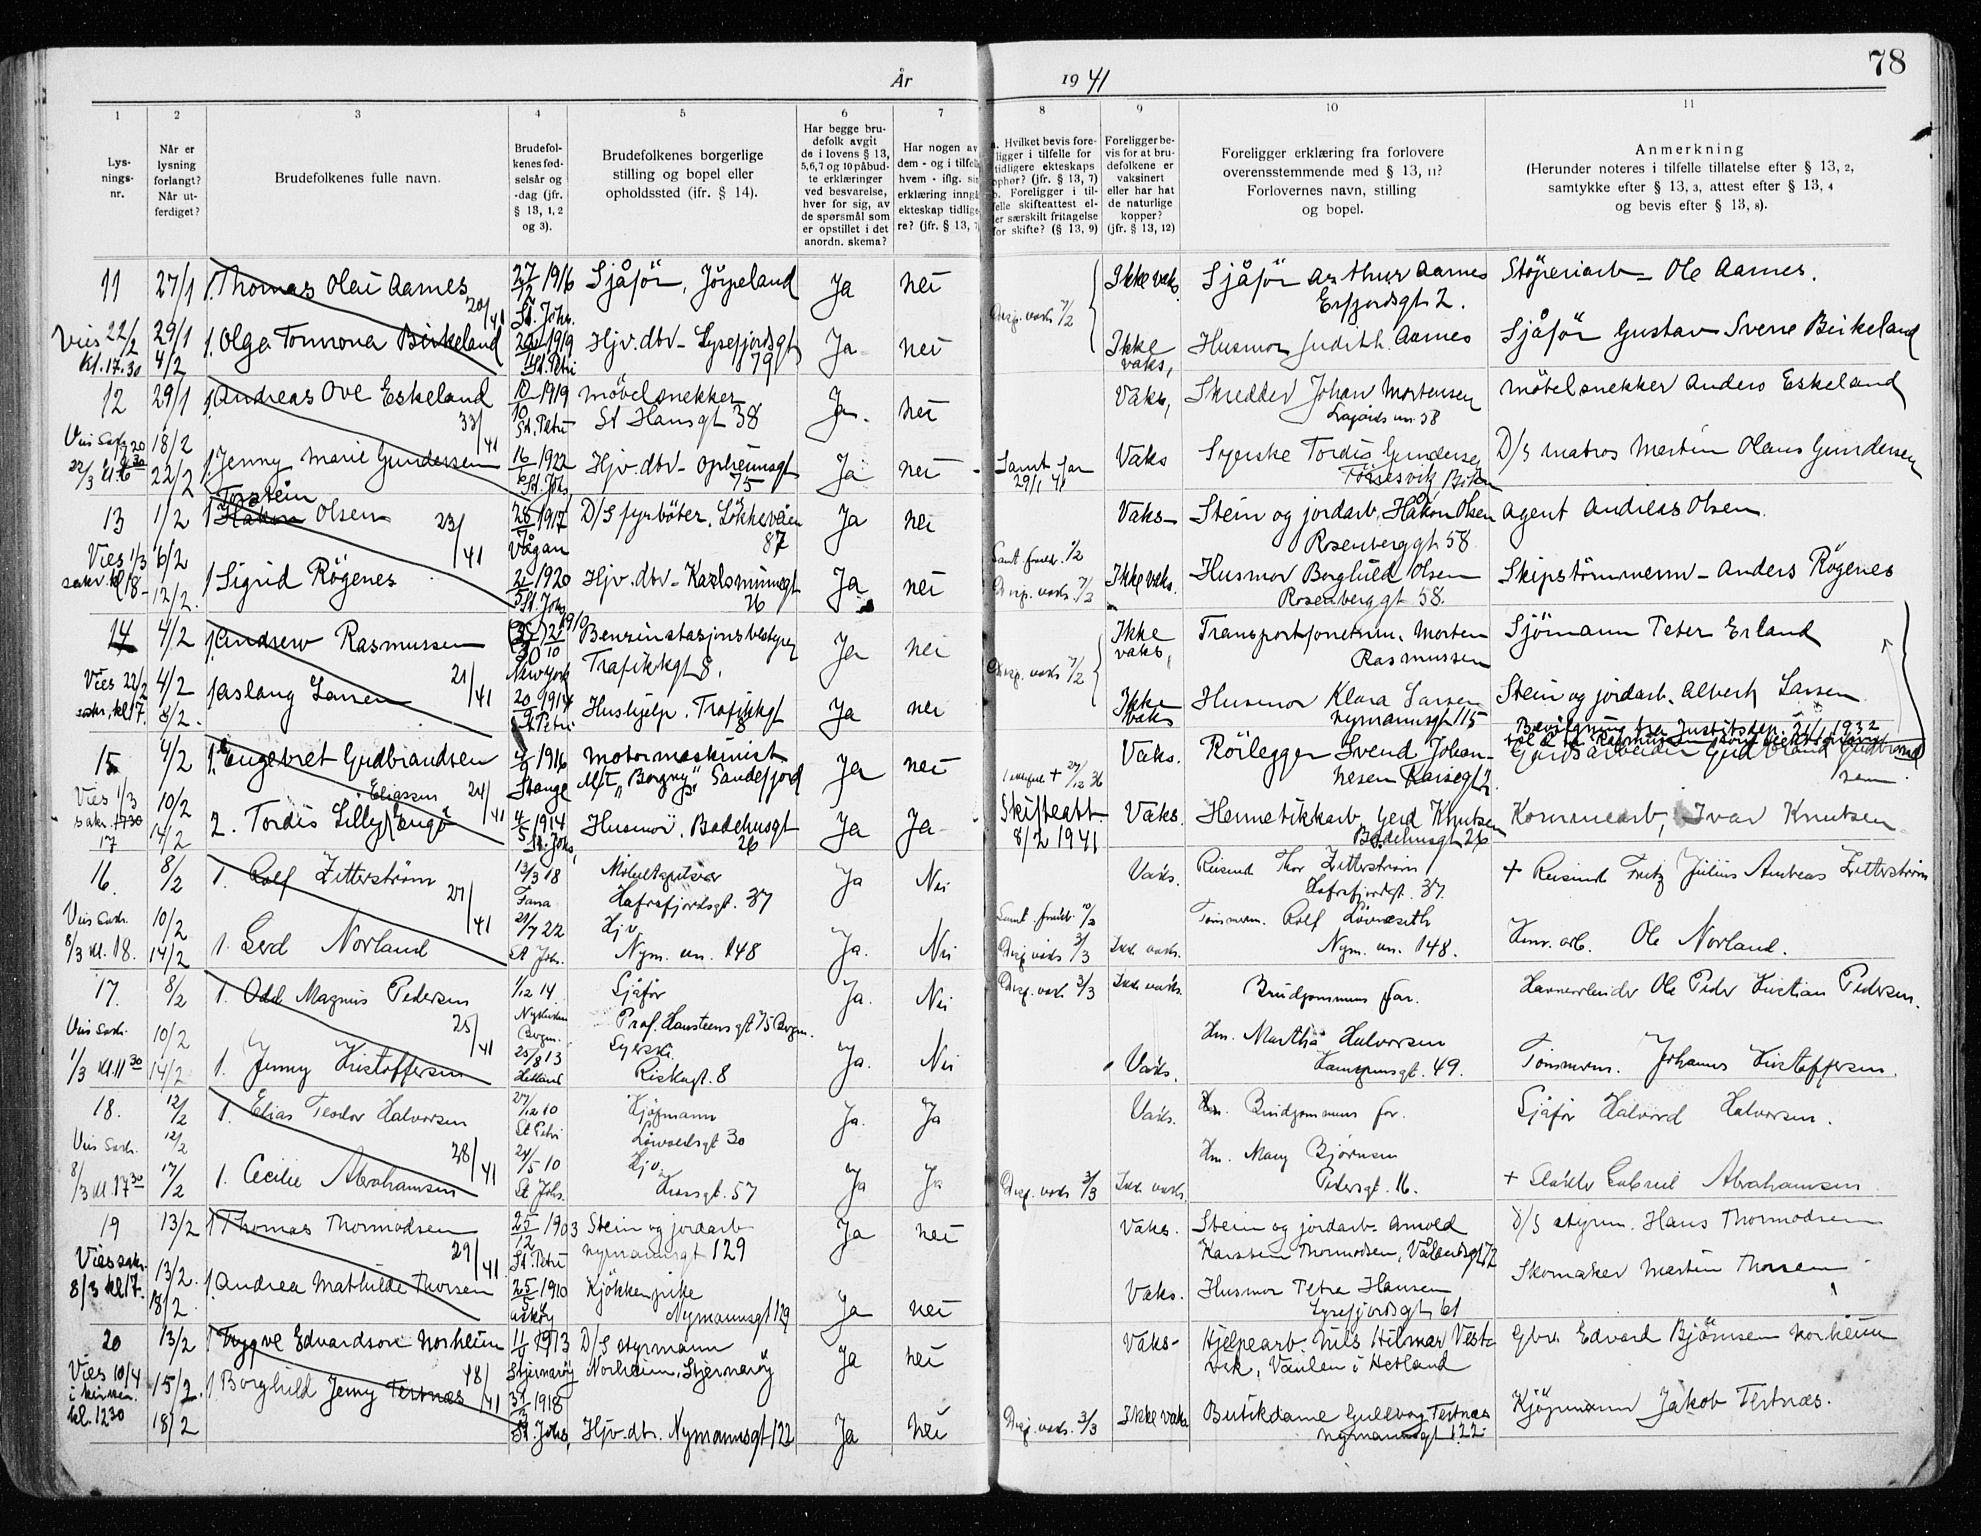 78
År 1941
1 2 3 4 5 6 7 8 9 10 11
Lys-
nings-
nr.
Når er
lysning
forlangt?
Når ut-
ferdiget?
Brudefolkenes fulle navn.
Brudefol-
kenes fød-
selsår og
-dag (jfr.
§ 13, 1, 2
og 3).
Brudefolkenes borgerlige
stilling og bopel eller
opholdssted (ifr. § 14).
Har begge bru-
defolk avgit
de i lovens § 13,
5,6,7 og 10 påbud-
te erklæringer
ved besvarelse,
hver for sig, av
de spørsmål som
er opstillet i det
anordn. skema?
Har nogen av
dem - og i tilfelle
hvem - iflg. sin
erklæring inngå
ekteskap tidlige-
re? (jfr. § 13, 7
a. Hvilket bevis fore-
ligger i tilfelle for
tidligere ekteskaps
ophør? (jfr. § 13, 7)
b. Foreligger i til-
felle skifteattest el-
ler særskilt fritagelse
for skifte? (§ 13, 9)
Foreligger be-
vis for at bru-
defolkene er
vaksinert
eller har hat
de naturlige
kopper?
(jfr. § 13, 12)
Foreligger erklæring fra forlovere
overensstemmende med § 13, 11?
Forlovernes navn, stilling
og bopel.
Anmerkning
(Herunder noteres i tilfelle tillatelse efter § 13, 2,
samtykke efter § 13, 3, attest efter § 13, 4
og bevis efter § 13, 8).
11 27/1 1. Thomas Olai Aarnes 27/12 1916 Sjåför, Jörpeland Ja nei Ikke vaks. Sjåför Arthur Aarnes Störeriarb. Ole Aarnes.
20/41 St. Johs. Disp. vaks 7/2 Erfjordsgt 2.
Vies 22/2 29/1 1. Olga Tomona Birkeland 1919 Hjv. dtr. Lysefjordsgt Ja nei Ikke Husmor Judith Aarnes Sjåför Gustav Svene Birkeland
kl. 17.30 4/2 St. Petri 79 vaks,
12 29/1 1. Andreas Ove Eskeland 10/10 1919 möbelsnekker Ja. nei Vaks, Skredder Johan Mortensen möbelsnekker Anders Eskeland
33/41 St. Petri St Hansgt 38
18/2
22/2 1. Jenny Marie Gundersen 16/6 1922 Hjv. dtr. Opheimsgt Ja nei - Samt. far Vaks Syerske Tordis Gundersen D/S matros Martin Olaus Gundersen
St. Johs. 75 29/1 41
Torstein
13 1/2 1 Håkon Olsen 28/ 1917 D/S fyrböter. Lökkeveien Ja nei Vaks- Stein og jordarb. Håkon Olsen Agent Andreas Olsen.
23/41 Vågan 87 Rosenberggt 58
Vies 1/3 6/2 Samt. foreld. 1/2
sakr. kl 18- 12/2. 1 Sigrid Rögenes 2/5 1920 Hjv. dtr. Karlsminnegt Ja nei Disp. vaks. 7/2 Ikke vaks. Husmor Borghild Olsen Skipstömmerm. Anders Rögenes
St. Johs 76 Rosenberggt 58.
14 4/2 1. Andrew Rasmussen 1910 Benzinstasjonsbestyrer Ja nei Ikke Transportforetnm. Morten Sjömann Peter Erland
21/41 New York Trafikkgt 8, Disp. vaks 7/2 vaks, Rasmussen
Vies 22/2 4/2 1 Aslaug Larsen 20/9 1914 Hushjelp. Trafikkgt Ja nei Ikke Husmor Klara Larsen Stein og jordarb. Albert Larsen
sakr. kl 17. 8/2. St. Petri 8 vaks Nymannsgt 115
Bevilgning fra Justitsdep. 21/1 1932
15 4/2 1. Engebret Gudbrandsen 4/ 1916 motormaskinist Ja nei Vaks. Rörlegger Svend Johan- Gårdsarbeider Gudbrand Gudbrand
Stange M/T "Borgny" Sandefjord nesen sen.
Eliassen 24/41
Vies 1/3 10/2
sakr. 1730 14/2 2. Tordis Lilly Eengö 4/5 1914 Husmor, Badehusgt Ja Ja Skifteatt. Vaks. Hermetikkarb. Gerd Knutsen Kommuearb, Ivar Knutsen
17 St. Johs, 26 8/2 1941 Badehusgt 26
16. 8/2 1. Rolf Zitterström 13/3 18 Möbeltapetserer Ja Nei Vaks. Reisend Thor Zitterström + Reisend Fritz Julius Andreas Zitterström
27/41 Fana Hafrsfjordsgt. 37 Hafrsfjordgt. 37.
Vies Sakr. 10/2 21/7 22 Hjv Samt. foreld. 10/2 Tømmerm. Rolf
8/3 kl. 18. 14/2 1. Gerd Norland St Johs. Nym. vn. 148 Ja. Nei Disp vaks 3/3 Ikke vaks. Nym. vn. 148. Herm. arb. Ole Norland.
17. 8/2 1. Odd Magnus Pedersen 1/12 14. Sjåfør Ja. Nei Disp. vaks 3/3 Ikke vaks. Brudgommens far. Havnearbeider Ole Peder Kristian Pedersen.
25/41 Bergen. Prof. Hansteensgt 75 Bergen.
Vies Sakr. 10/2 25/8 13 Syerske. Hm. Martha Halvorsen
1/3 kl. 11 30 14/2 1. Jenny Kristoffersen Hetland Riskagt. 8 Ja. Nei Vaks. Kampensgt. 49. Tømmerm. Johannes Kristoffersen.
18. 12/2 1. Elias Teodor Halvorsen 27/12 10 Kjøpmann Ja. Ja Vaks. Brudgommens far. Sjåfør Halvord Halvorsen.
28/41 St Petri Løvoldsgt 30
Vies Sakr. 12/2 24/5 10 Hjv. Hm. Mary Bjørnsen
8/3 kl. 17 30 17/2 1. Cecilie Abrahamsen St Johs. Karsgt. 57 Ja Ja Disp. vaks 3/3 Ikke vaks. Pedersgt. 16. + Gabriel Abrahamsen
19 13/2 1 Thomas Thormodsen 25/12 1903 Stein og jordarb. Ja nei Vaks. Stein og jordarb. Arnold D/S styrm. Hans Thormodsen
29/41 St. Petri nymannsgt 129 Karsten Thormodsen, Vålandsgt 72
Vies sakr. 13/2.
8/3 kl 17. 18/2. 1. Andrea Mathilde Thorsen 25/5 1910 Kjökkenpike Ja nei Vaks. Husmor Petra Hansen Skomaker Martin Thorsen
Askøy Nymannsgt 129 Lysefjordsgt 61
20 13/2 1 Trygve Edvardson Norheim 11/ 1913 D/S styrmann Ja nei Vaks- Hjelpearb. Nils Hilmar Vest- Gbr. Edvard Björnsen Norheim
48/41 Stjernaröy Norheim, Stjernaröy vik, Vaulen i Hetland
Vies 10/4 15/2. 1 Borghild Jenny Testnæs 1918
i kirken.
kl. 1230 18/2 St. Johs, Hjv. dtr. Nymannsgt 122 Ja nei Disp. vaks. 3/3 Ikke vaks Butikdame Gullborg Testnæs Kjöpmann Jakob Testnæs.
nymannsgt 122.